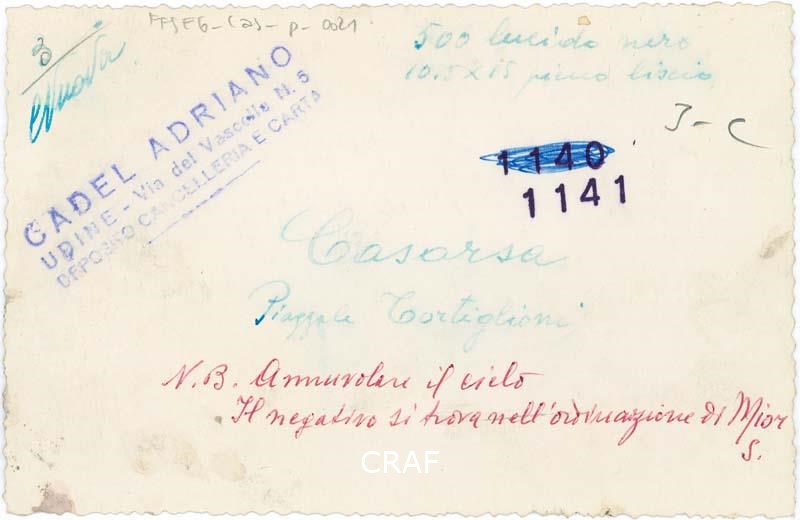 FFSEG-Cas-p-0021
3
0
Nuova
500 lucido nero
10.5x15 pieno liscio
3-C
CADEL ADRIANO
UDINE - Via del Vascello N. 5
DEPOSITO CANCELLERIA E CARTA
1140
1141
Casarsa
Piazzale Cortiglioni
N.B. Annuvolare il cielo
Il negativo si trova nell'ordinazione di Mior
S.
CRAF